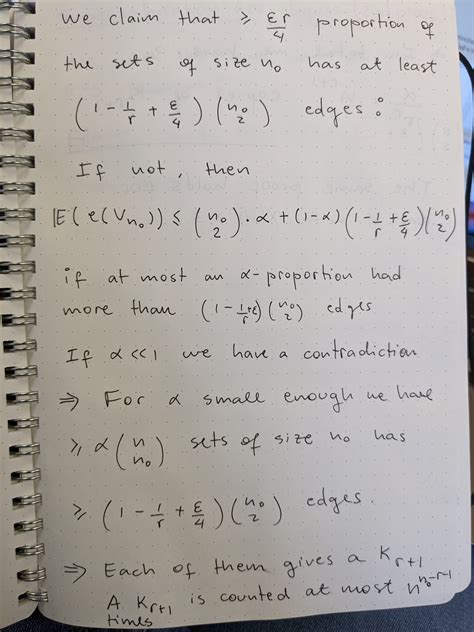 We claim that ≥ εr/4 proportion of
the sets of size n₀ has at least
(1 - 1/r + ε/4) (n₀ 2) edges :
If not, then
IE(e(Vn₀)) ≤ (n₀ 2) · α + (1-α) (1 - 1/r + ε/4) (n₀ 2)
if at most an α-proportion had
more than (1 - 1/r+ε) (n₀ 2) edges
If α << 1 we have a contradiction
⇒ For α small enough we have
≥ α (n n₀) sets of size n₀ has
≥ (1 - 1/r + ε/4) (n₀ 2) edges.
⇒ Each of them gives a Kr+1
A Kr+1 is counted at most n^n₀-r-1
times